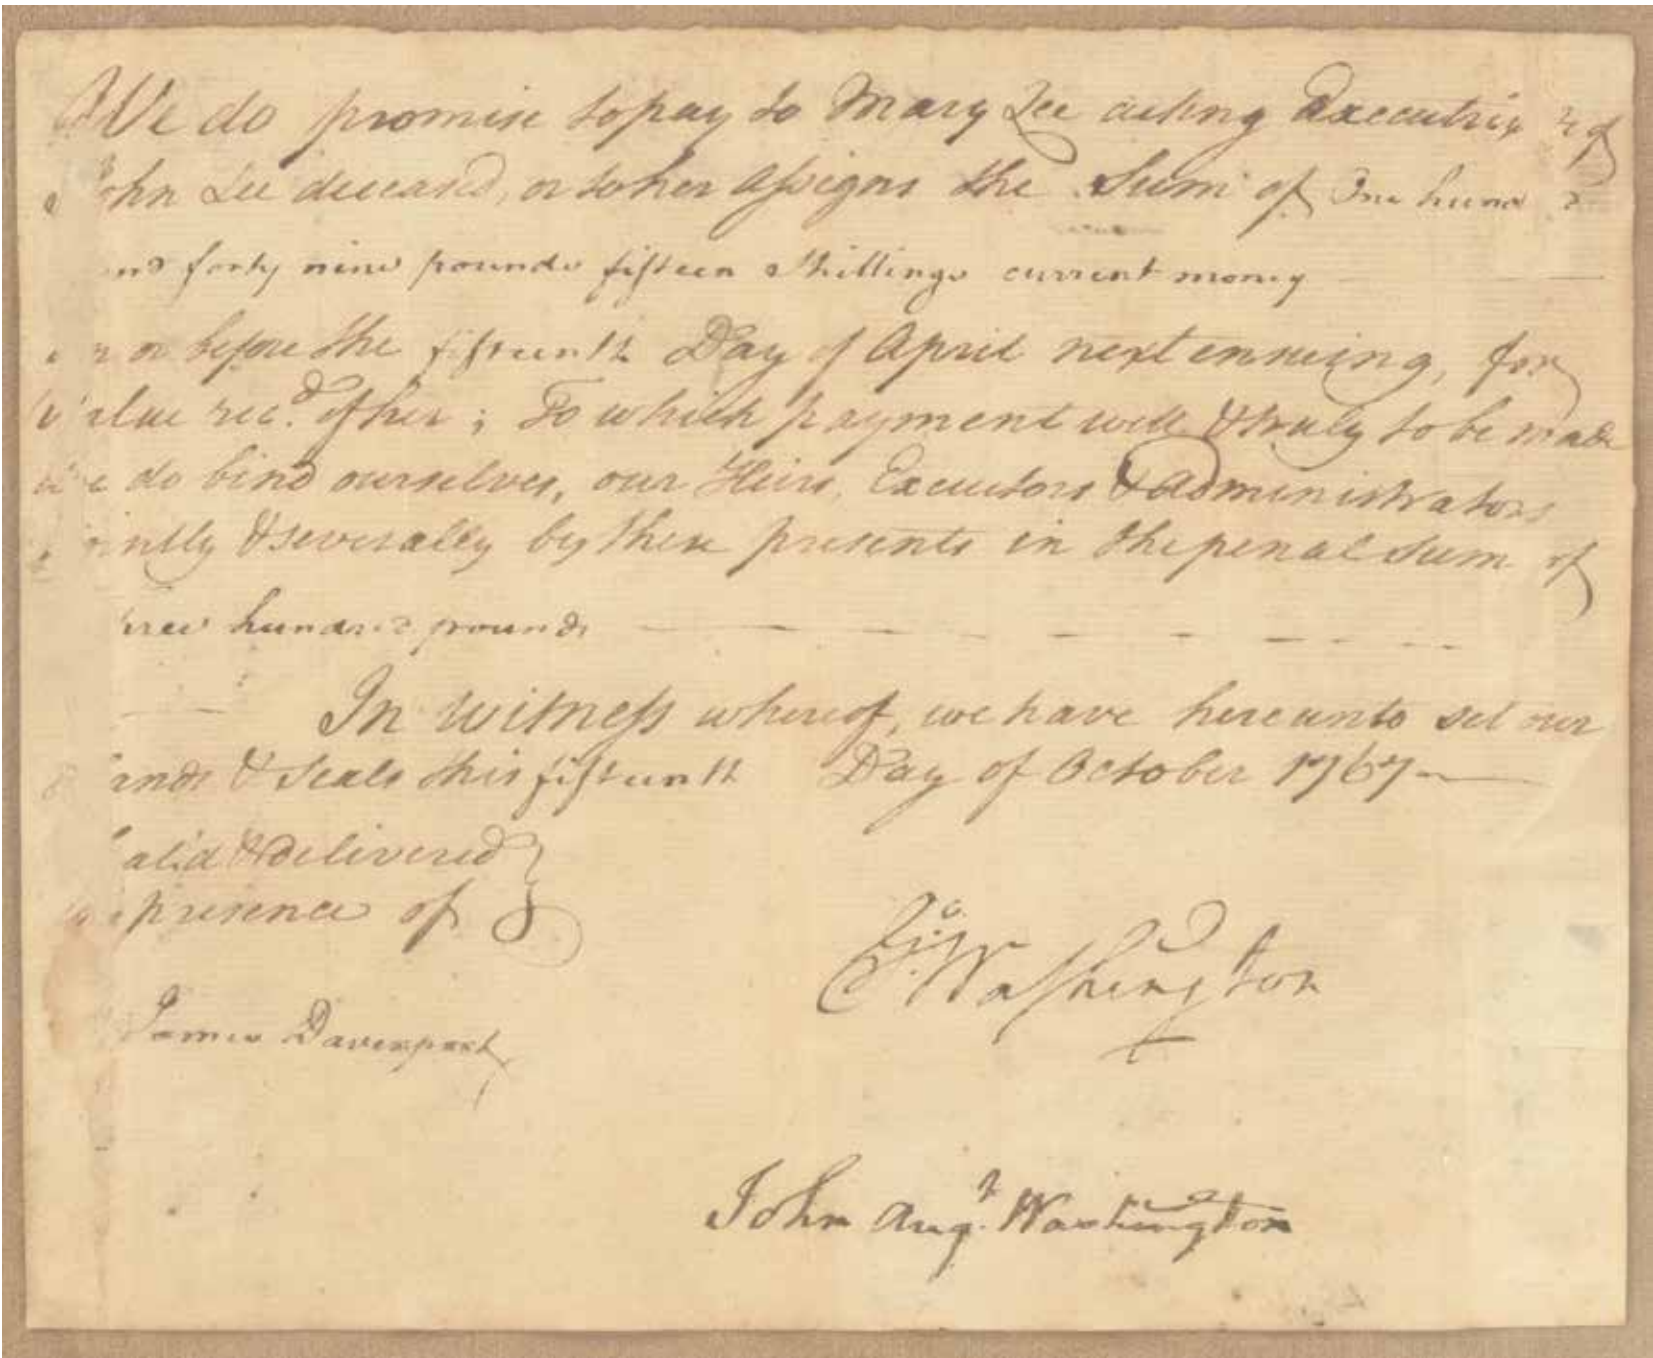 We do promise to pay to Mary Lee acting Executrix of
John Lee deceased, or to her Assigns the Sum of One hund
and forty nine pounds fifteen Shillings current money
on or before the fifteenth Day of April next ensuing, for
Value rec.d of her; To which payment well & truly to be made
We do bind ourselves, our Heirs, Executors & Administrators
ntly & severally by these presents in the penal Sum of
hree hundred pounds
In Witness whereof, we have hereunto set our
ands & Seals this fifteenth Day of October 1767
eal'd & delivered
presence of
Washington
James Davenport
John Aug.t Washington